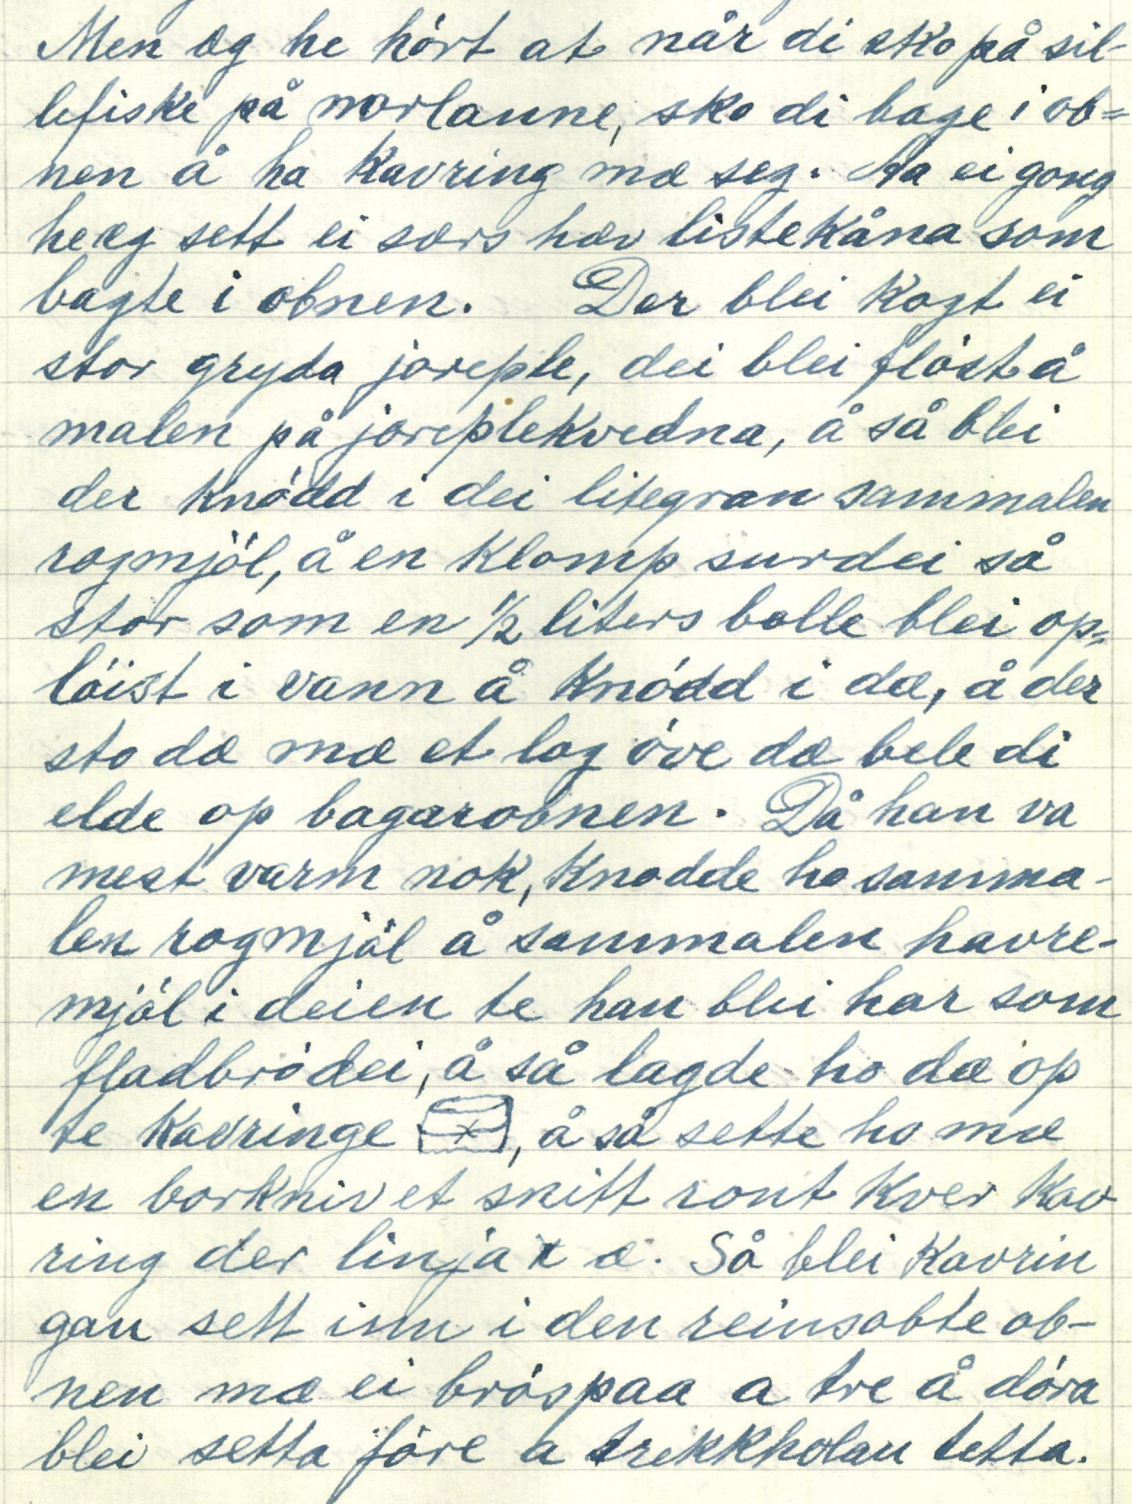 Men æg he hórt at når di sko på sil-
lefiske på norlanne, sko di bage i ob=
nen å ha kavring mæ seg. Aa ei gong
he æg sett ei særs hæv listekåna som
bagte i obnen. Der blei kogt ei
stor gryda joreple, dei blei flóst å
malen på joreplekvedna, å så blei
der knódd i dei litegran sammalen
rogmjól, å en klomp surdei så
stor som en ½ liters bolle blei op=
lóist i vann å knódd i dæ, å der
sto dæ mæ et log óve dæ bele di
elde op bagarobnen. Då han va
mest varm nok, knodde ho samma-
len rogmjól å sammalen havre-
mjól i deien te han blei har som
fladbródei, å så lagde ho dæ op
te kavringe x, å så sette ho mæ
en borkniv et snitt ront kver kav
ring der linja x æ. Så blei kavrin
gan sett inn i den reinsobte ob-
nen mæ ei bróspaa a tre å dóra
blei setta fóre a trekkholan tetta.